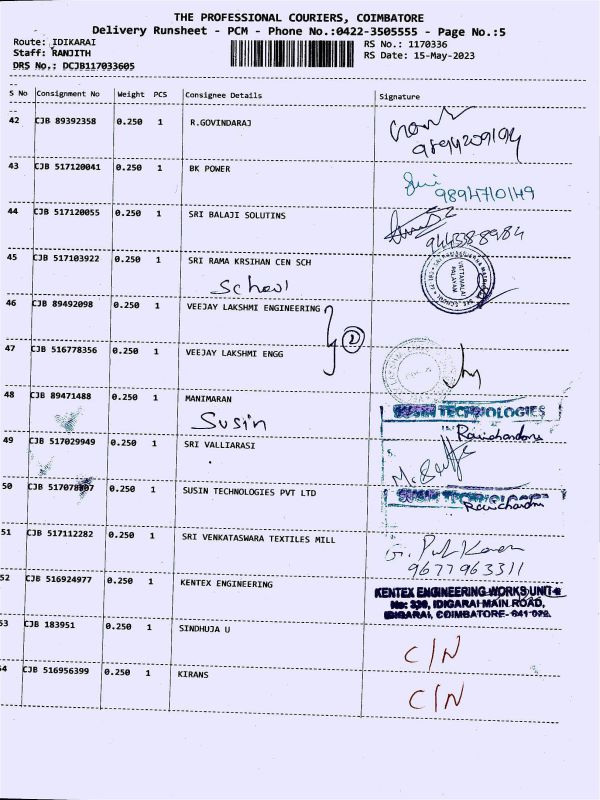 THE PROFESSIONAL COURIERS, COIMBATORE
Delivery Runsheet - PCM - Phone No.:0422-3505555 - Page No.:5
Route: IDIKARAI RS No.: 1170336
Staff: RANJITH RS Date: 15-May-2023
DRS No.: DCJB117033605
S No Consignment No Weight PCS Consignee Details Signature
42 CJB 89392358 0.250 1 R.GOVINDARAJ
9894209194
43 CJB 517120041 0.250 1 BK POWER
9894710149
44 CJB 517120055 0.250 1 SRI BALAJI SOLUTINS
9443388984
45 CJB 517103922 0.250 1 SRI RAMA KRSIHAN CEN SCH
School
46 CJB 89492098 0.250 1 VEEJAY LAKSHMI ENGINEERING
2
47 CJB 516778356 0.250 1 VEEJAY LAKSHMI ENGG
48 CJB 89471488 0.250 1 MANIMARAN
Susin SUSIN TECHNOLOGIES
Ravichandran
49 CJB 517029949 0.250 1 SRI VALLIARASI
50 CJB 517078807 0.250 1 SUSIN TECHNOLOGIES PVT LTD SUSIN TECHNOLOGIES
51 CJB 517112282 0.250 1 SRI VENKATASWARA TEXTILES MILL
9677963311
52 CJB 516924977 0.250 1 KENTEX ENGINEERING KENTEX ENGINEERING WORKS UNIT
No: 336, IDIGARAI MAIN ROAD,
IDIGARAI, COIMBATORE- 641 022.
53 CJB 183951 0.250 1 SINDHUJA U C/N
54 CJB 516956399 0.250 1 KIRANS C/N